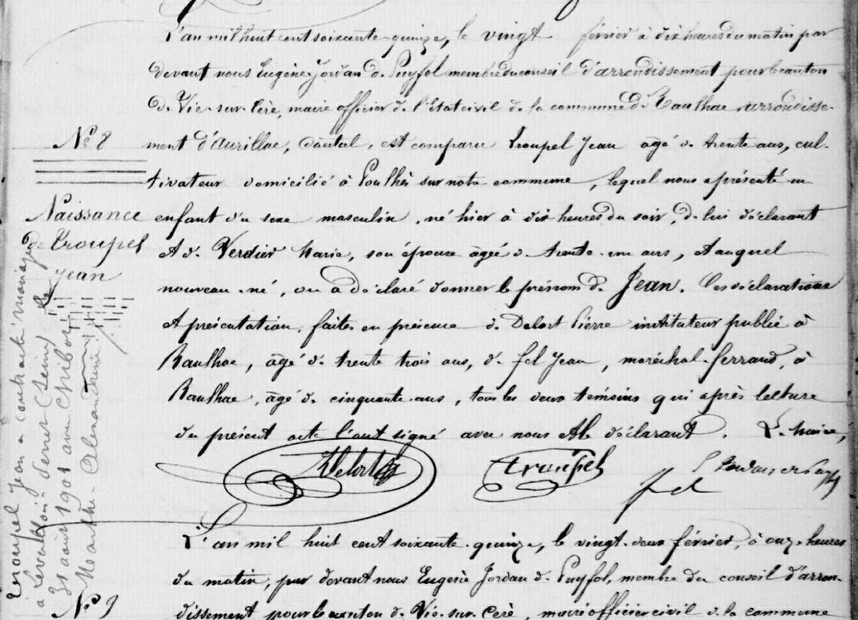 L'an mil huit cent soixante-quinze, le vingt février à dix heures du matin par
devant nous Eugène Jordan de Puyfol membre du conseil d'arrondissement pour le canton
de Vic-sur-Cère, maire officier de l'Etat civil de la commune de Raulhac arrondisse-
Nº 8
ment d'Aurillac, Cantal, est comparu Troupel Jean âgé de trente ans, cul-
tivateur domicilié à sur notre commune, lequel nous a présenté un
Naissance
enfant du sexe masculin, né hier à dix heures du soir, de lui déclarant
de Troupel
Et de Verdier Marie, son épouse âgée de trente-un ans, et auquel
Jean
nouveau-né, on a déclaré donner le prénom de Jean. Ces déclarations
et présentation faites en présence de Delort Pierre instituteur public à
Raulhac, âgé de trente trois ans, de fel Jean, maréchal-ferrand, à
Raulhac, âgé de cinquante ans, tous les deux témoins qui après lecture
du présent acte l'ont signé avec nous et le déclarant. Le maire,
Delort
troupel
fel
Troupel Jean a contracté mariage
à Levallois-Perret (Seine) le
31 août 1901 avec
Marthe Alexandrine
L'an mil huit cent soixante-quinze, le vingt-deux février, à onze heures
du matin, par devant nous Eugène Jordan de Puyfol, membre du conseil d'arron-
Nº 9
dissement pour le canton de Vic-sur-Cère, maire officier civil de la commune